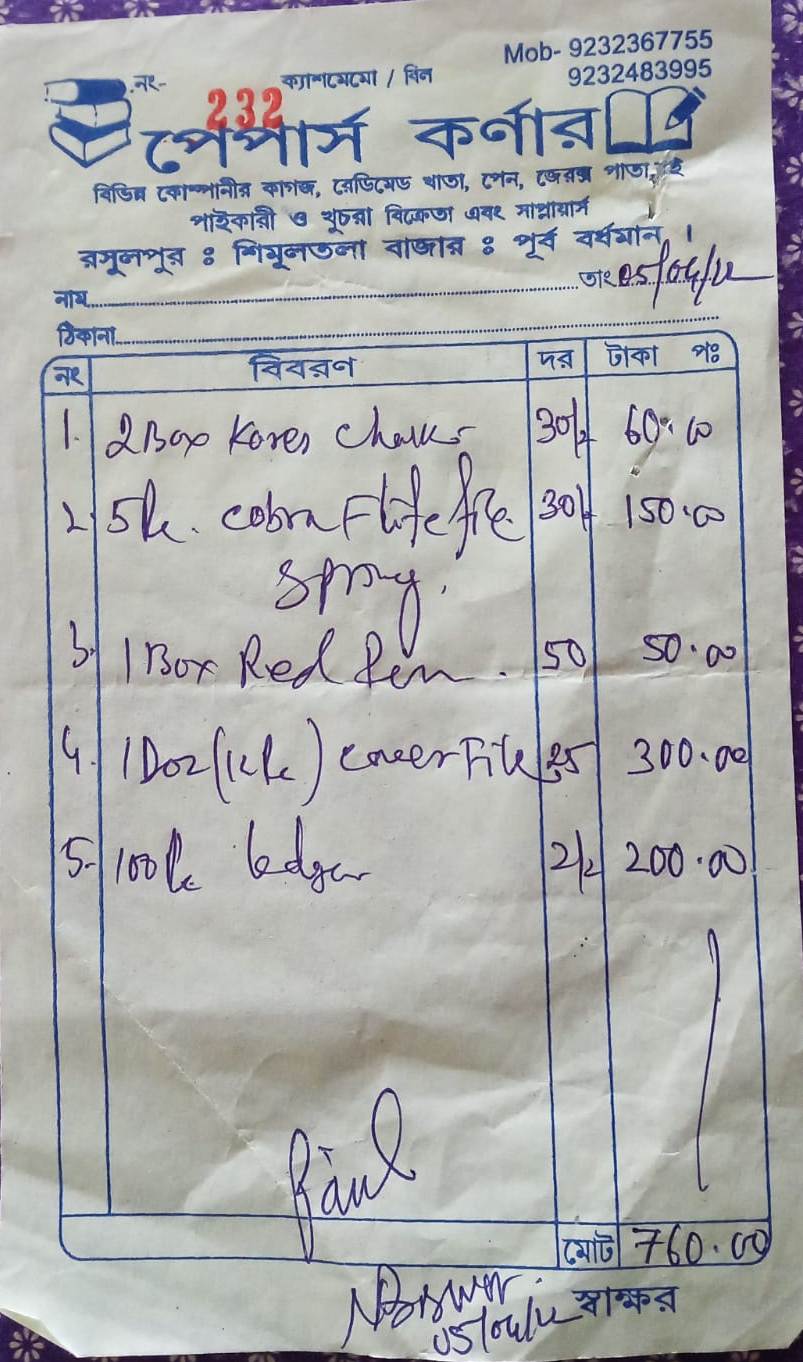 Mob- 9232367755
9232483995
নং-
232
ক্যাশমেমো / বিল
পেপার্স কর্ণার
বিভিন্ন কোম্পানীর কাগজ, রেডিমেড খাতা, পেন, জেরক্স পাতা, বই
পাইকারী ও খুচরা বিক্রেতা এবং সাপ্লায়ার্স
রসুলপুর ঃ শিমুলতলা বাজার ঃ পূর্ব বর্ধমান ।
নাম
তাং 05/04/22
ঠিকানা
নং বিবরণ দর টাকা পঃ
1. 2 Box Kores Chalk 30/- 60.00
2. 5 Pc. cobra file 30/- 150.00
3. 1 Box Red Pen. 50 50.00
4. 1 Doz (12 Pc) cover File 25 300.00
5. 100 Pc ledger 2/- 200.00
মোট 760.00
স্বাক্ষর
05/04/22